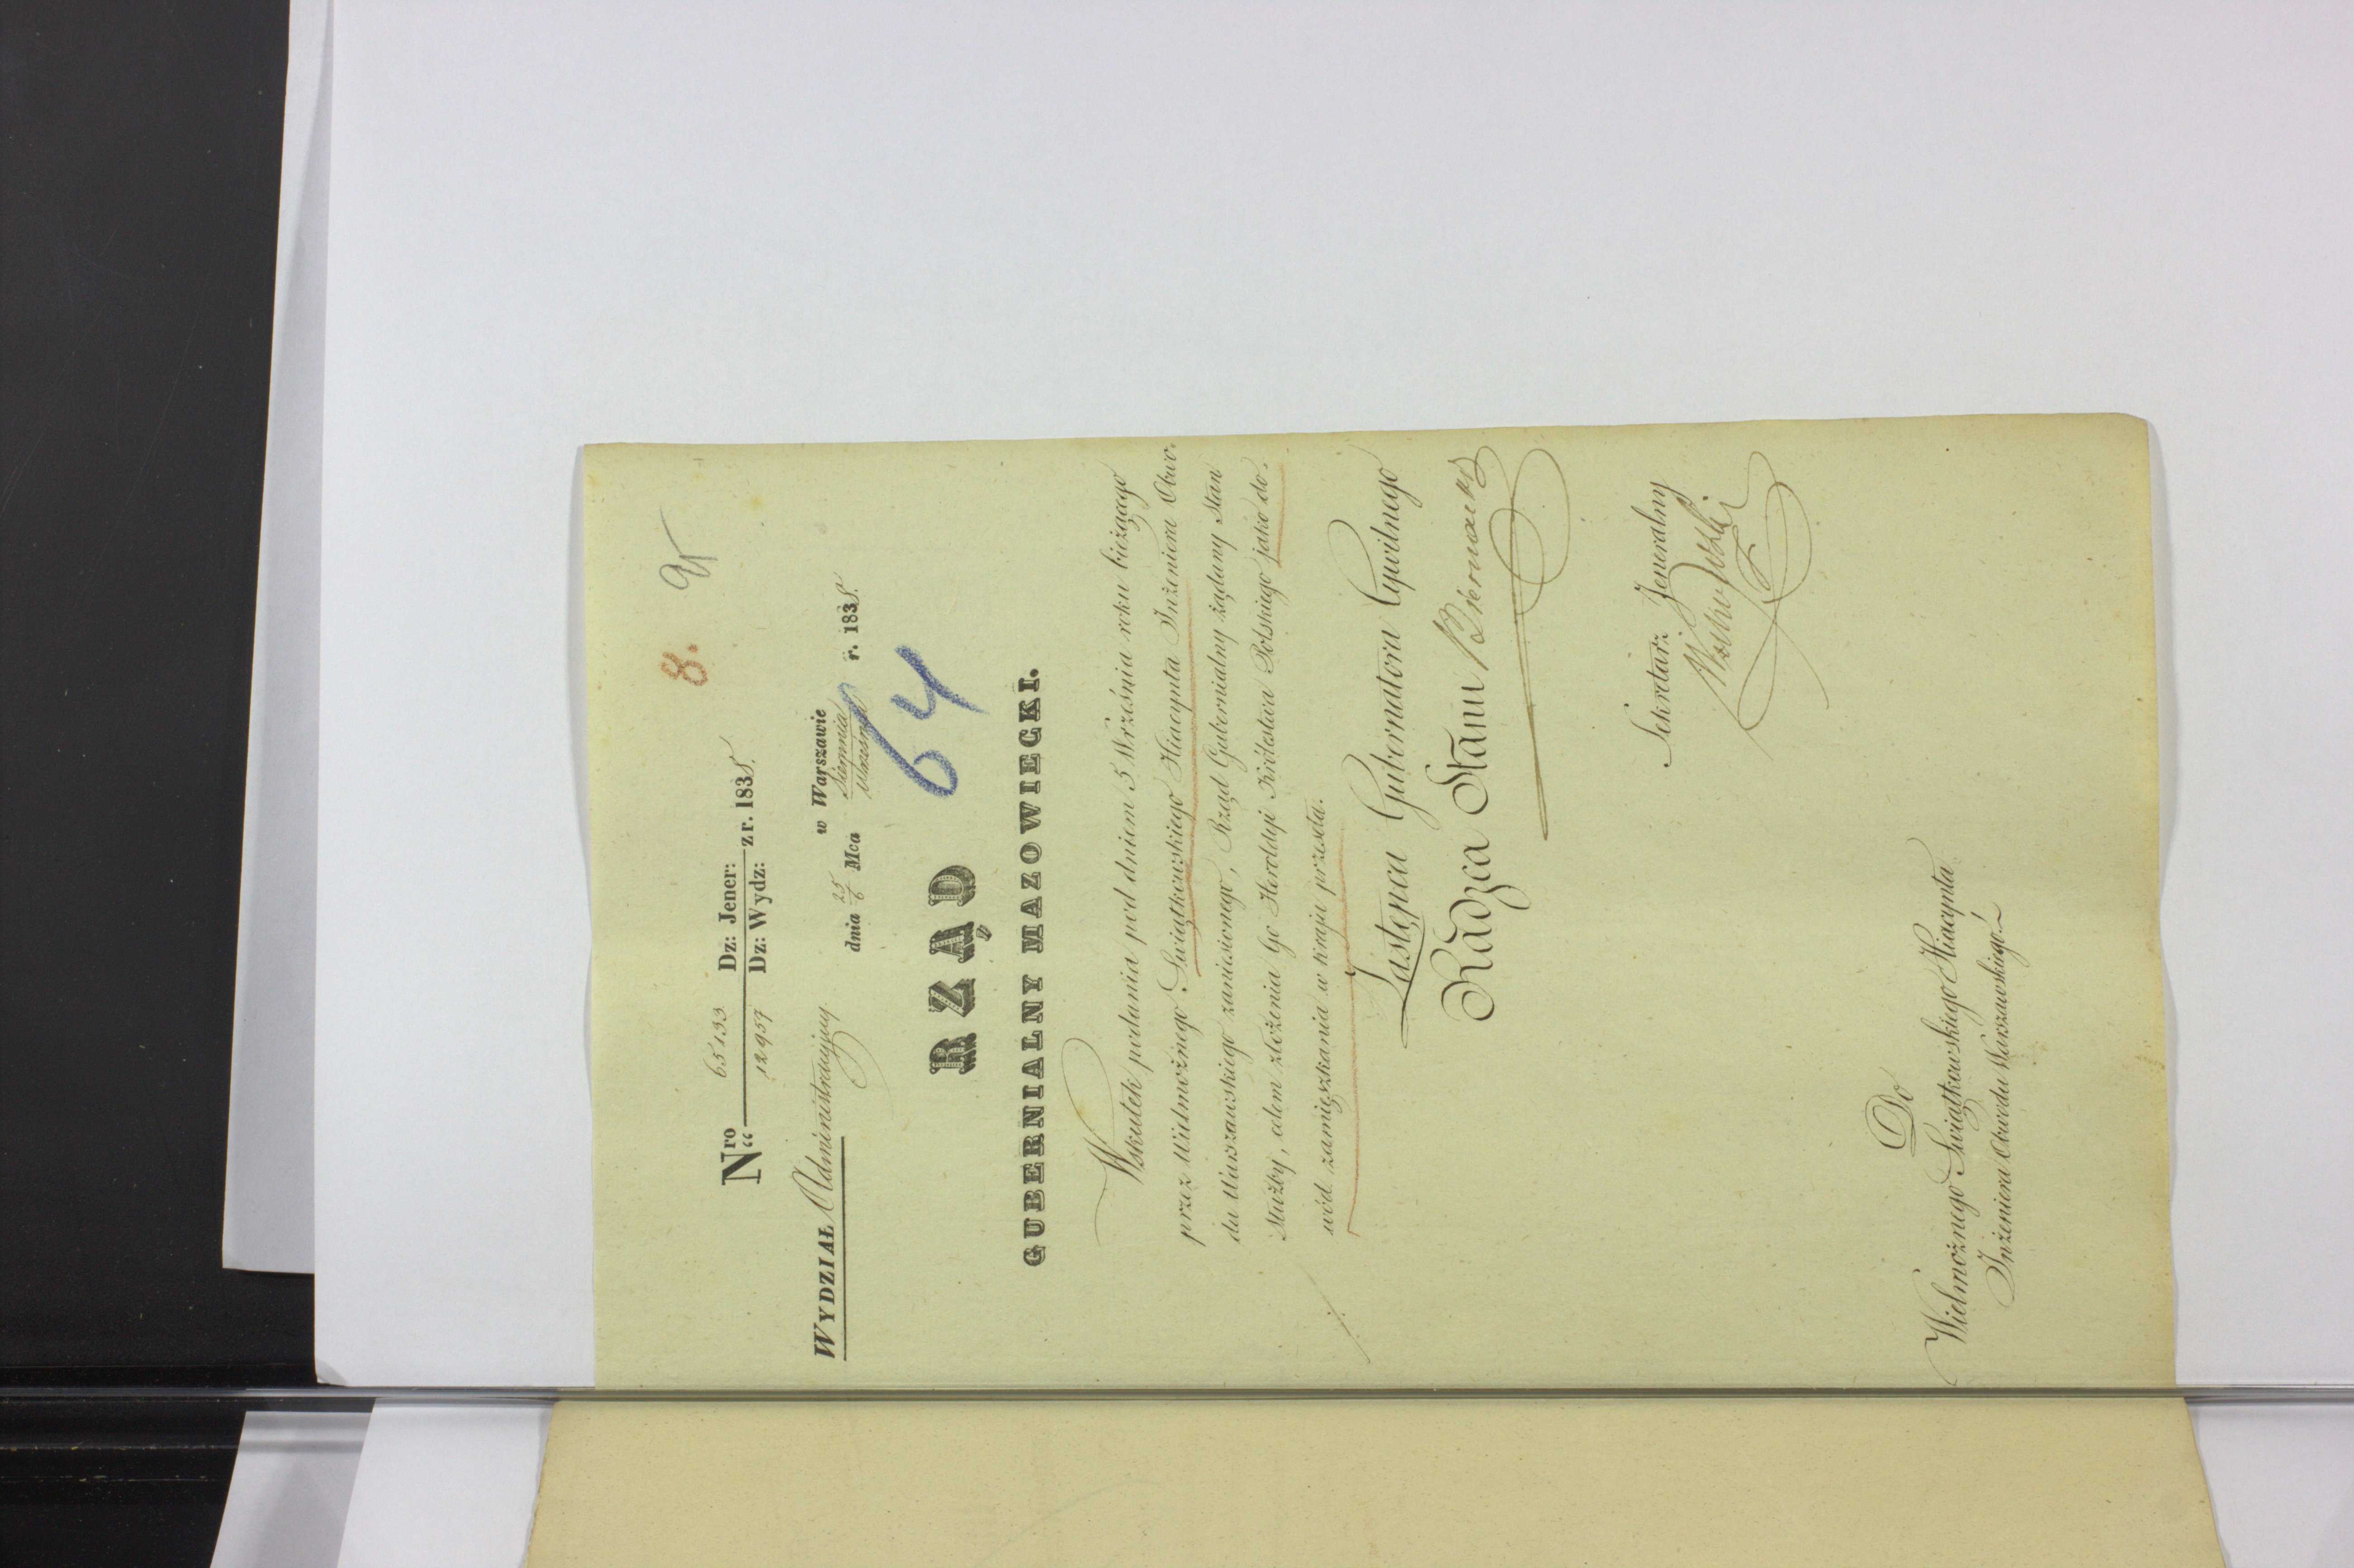 8.
Nro 65133 Dz: Jener:
" 12957 Dz: Wydz: z r. 1838.
WYDZIAŁ Administracyjny
w Warszawie
dnia 25/6 Mca Sierpnia/Września r. 1838.
64
RZĄD
GUBERNIALNY MAZOWIECKI.
Wskutek podania pod dniem 5 Września roku bieżącego
przez Wielmożnego Swiątkowskiego Hiacynta Inżeniera Obwo-
du Warszawskiego zaniesionego, Rząd Gubernialny żądany Stan
służby, celem złożenia Go Heroldyi Królestwa Polskiego jako do-
wód zamięszkania w kraju przeseła.
Zastępca Gubernatora Cywilnego
Radzca Stanu Biernacki
Sekretarz Jeneralny
Do
Wielmożnego Swiątkowskiego Hiacynta
Inżeniera Obwodu Warszawskiego